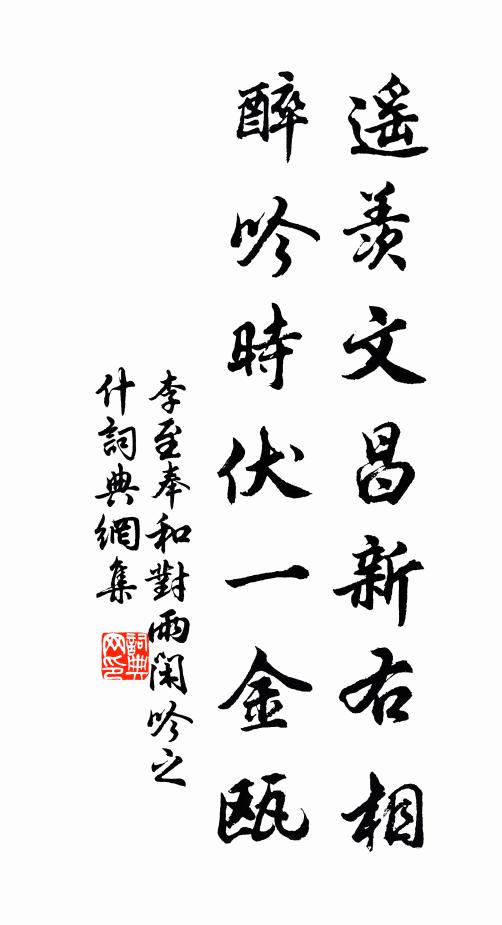 遥羨文昌新右相
醉吟時伏一金甌
李至奉和對雨閑吟之
什詞典網集
詞典
网印